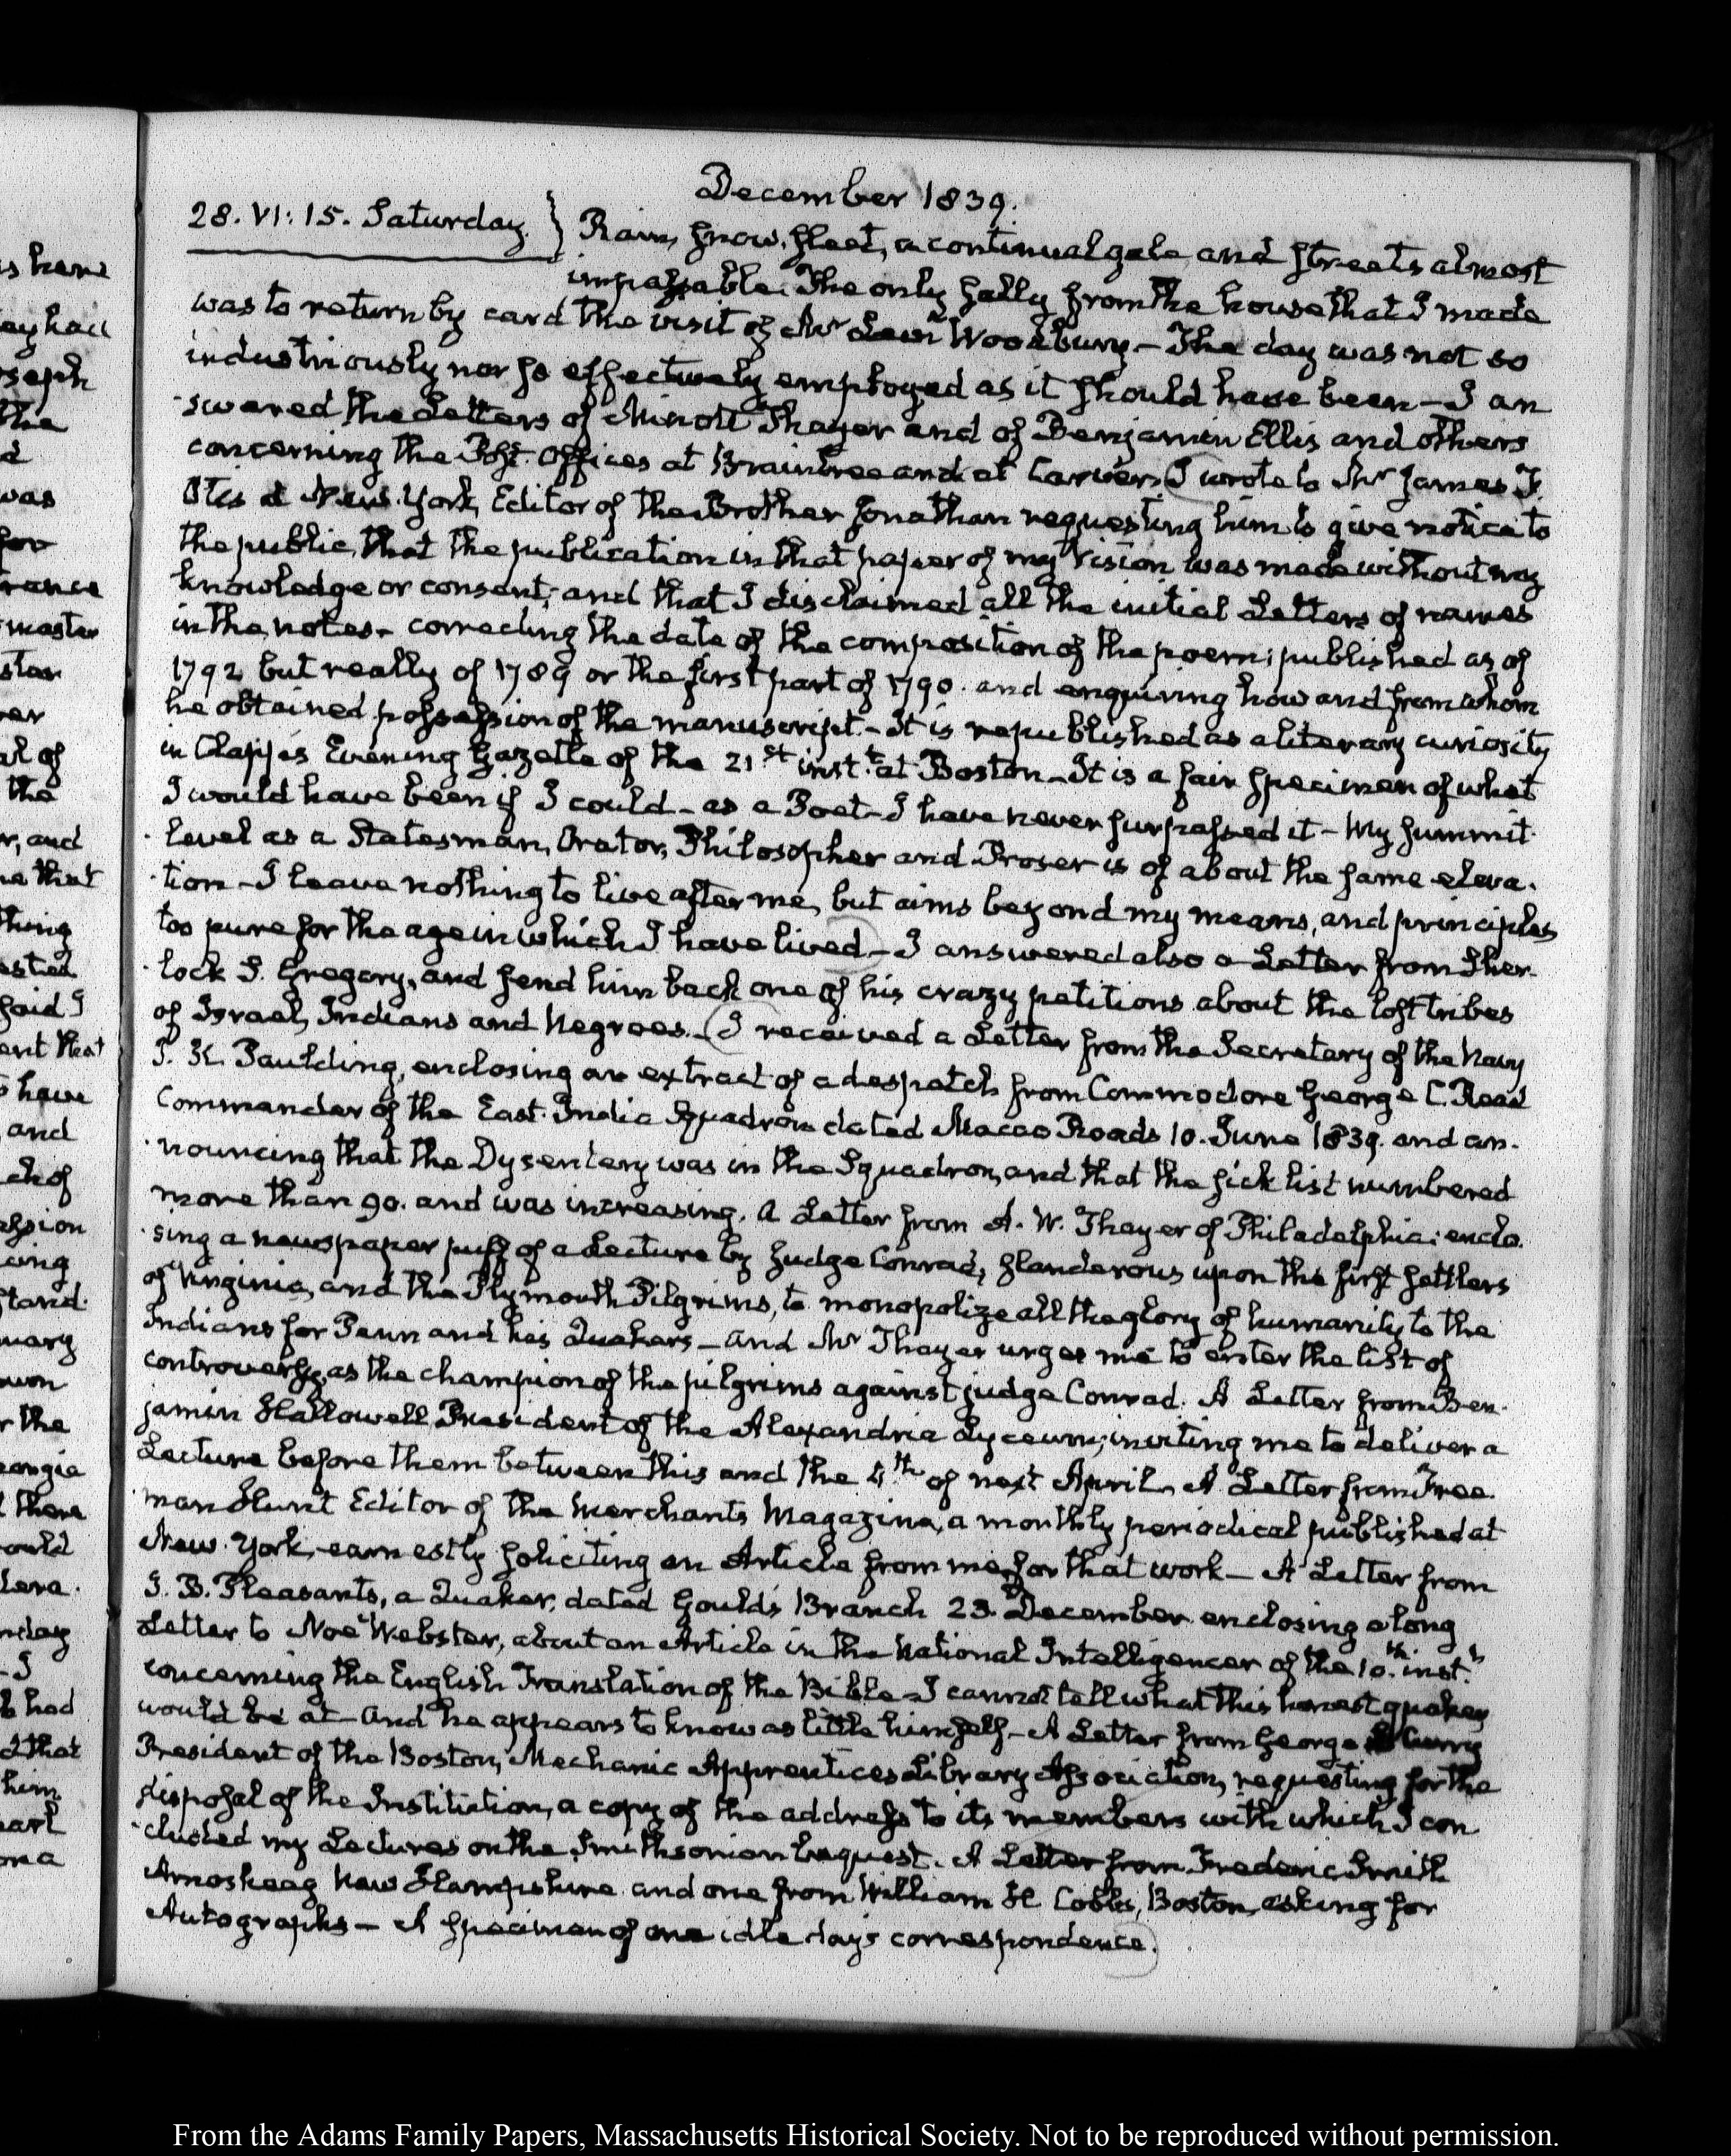 December 1839.
28. VI: 15. Saturday. } Rain, snow, sleet, a continual gale, and streets almost
impassable. The only sally from the house that I made
was to return by card the visit of Mr Levi Woodbury — The day was not so
industriously nor so effectively employed as it should have been — I an
swered the Letters of Minott Thayer and of Benjamin Ellis and others
concerning the Post-Offices at Braintree and at Carver. (I wrote to Mr James F.
Otis at New-York, Editor of the Brother Jonathan requesting him to give notice to
the public, that the publication in that paper of my Vision was made without my
knowledge or consent; and that I disclaimed all the initial Letters of names
in the notes — correcting the date of the composition of the poem; published as of
1792 but really of 1789 or the first part of 1790. and enquiring how and from whom
he obtained possession of the manuscript. — It is republished as a literary curiosity
in Clapp's Evening Gazette of the 21st inst.t at Boston — It is a fair specimen of what
I would have been if I could — as a Poet — I have never surpassed it — My summit
level as a Statesman, Orator, Philosopher and Proser is of about the same eleva-
tion — I leave nothing to live after me, but aims beyond my means, and principles
too pure for the age in which I have lived) — I answered also a Letter from Sher-
lock S. Gregory, and send him back one of his crazy petitions about the lost tribes
of Israel, Indians and Negroes. — (I received a Letter from the Secretary of the Navy
J. K. Paulding, enclosing an extract of a despatch from Commodore George C. Read
Commander of the East-India Squadron dated Macao Roads 10. June 1839. and an-
nouncing that the Dysentery was in the Squadron, and that the sick list numbered
more than 90. and was increasing. A Letter from A. W. Thayer of Philadelphia: enclo-
sing a newspaper puff of a Lecture by Judge Conrad, slanderous upon the first settlers
of Virginia, and the Plymouth Pilgrims, to monopolize all the glory of humanity to the
Indians for Penn and his Quakers — and Mr Thayer urges me to enter the list of
controversy, as the champion of the pilgrims against judge Conrad. A Letter from Ben-
jamin Hallowell President of the Alexandria Lyceum, inviting me to deliver a
Lecture before them between this and the 4th of next April. A Letter from Free-
man Hunt Editor of the Merchants Magazine, a monthly periodical published at
New-York, earnestly soliciting an Article from me for that work — A Letter from
J. B. Pleasants, a Quaker, dated Goulds Branch 23. December enclosing a long
Letter to Noa Webster, about an Article in the National Intelligencer of the 10.th inst.t
concerning the English Translation of the Bible — I cannot tell what this honest quaker
would be at — and he appears to know as little himself — A Letter from George Curry
President of the Boston, Mechanic Apprentices Library Association, requesting for the
disposal of the Institution, a copy of the address to its members with which I con
cluded my Lectures on the Smithsonian bequest. A Letter from Frederic Smith
Amoskeag New Hampshire and one from William H Cobbs, Boston, asking for
Autographs — A specimen of one idle day's correspondence.)
is have
ay had
oseph
the
was
for
france
master
star
ver
al of
the
r, and
ne that
thing
ested
said I
ent that
s have
and
ch of
ession
cing
stand
uary
own
r the
eorgia
there
ould
lera.
nday
- I
b had
d that
him
art
on a
From the Adams Family Papers, Massachusetts Historical Society. Not to be reproduced without permission.